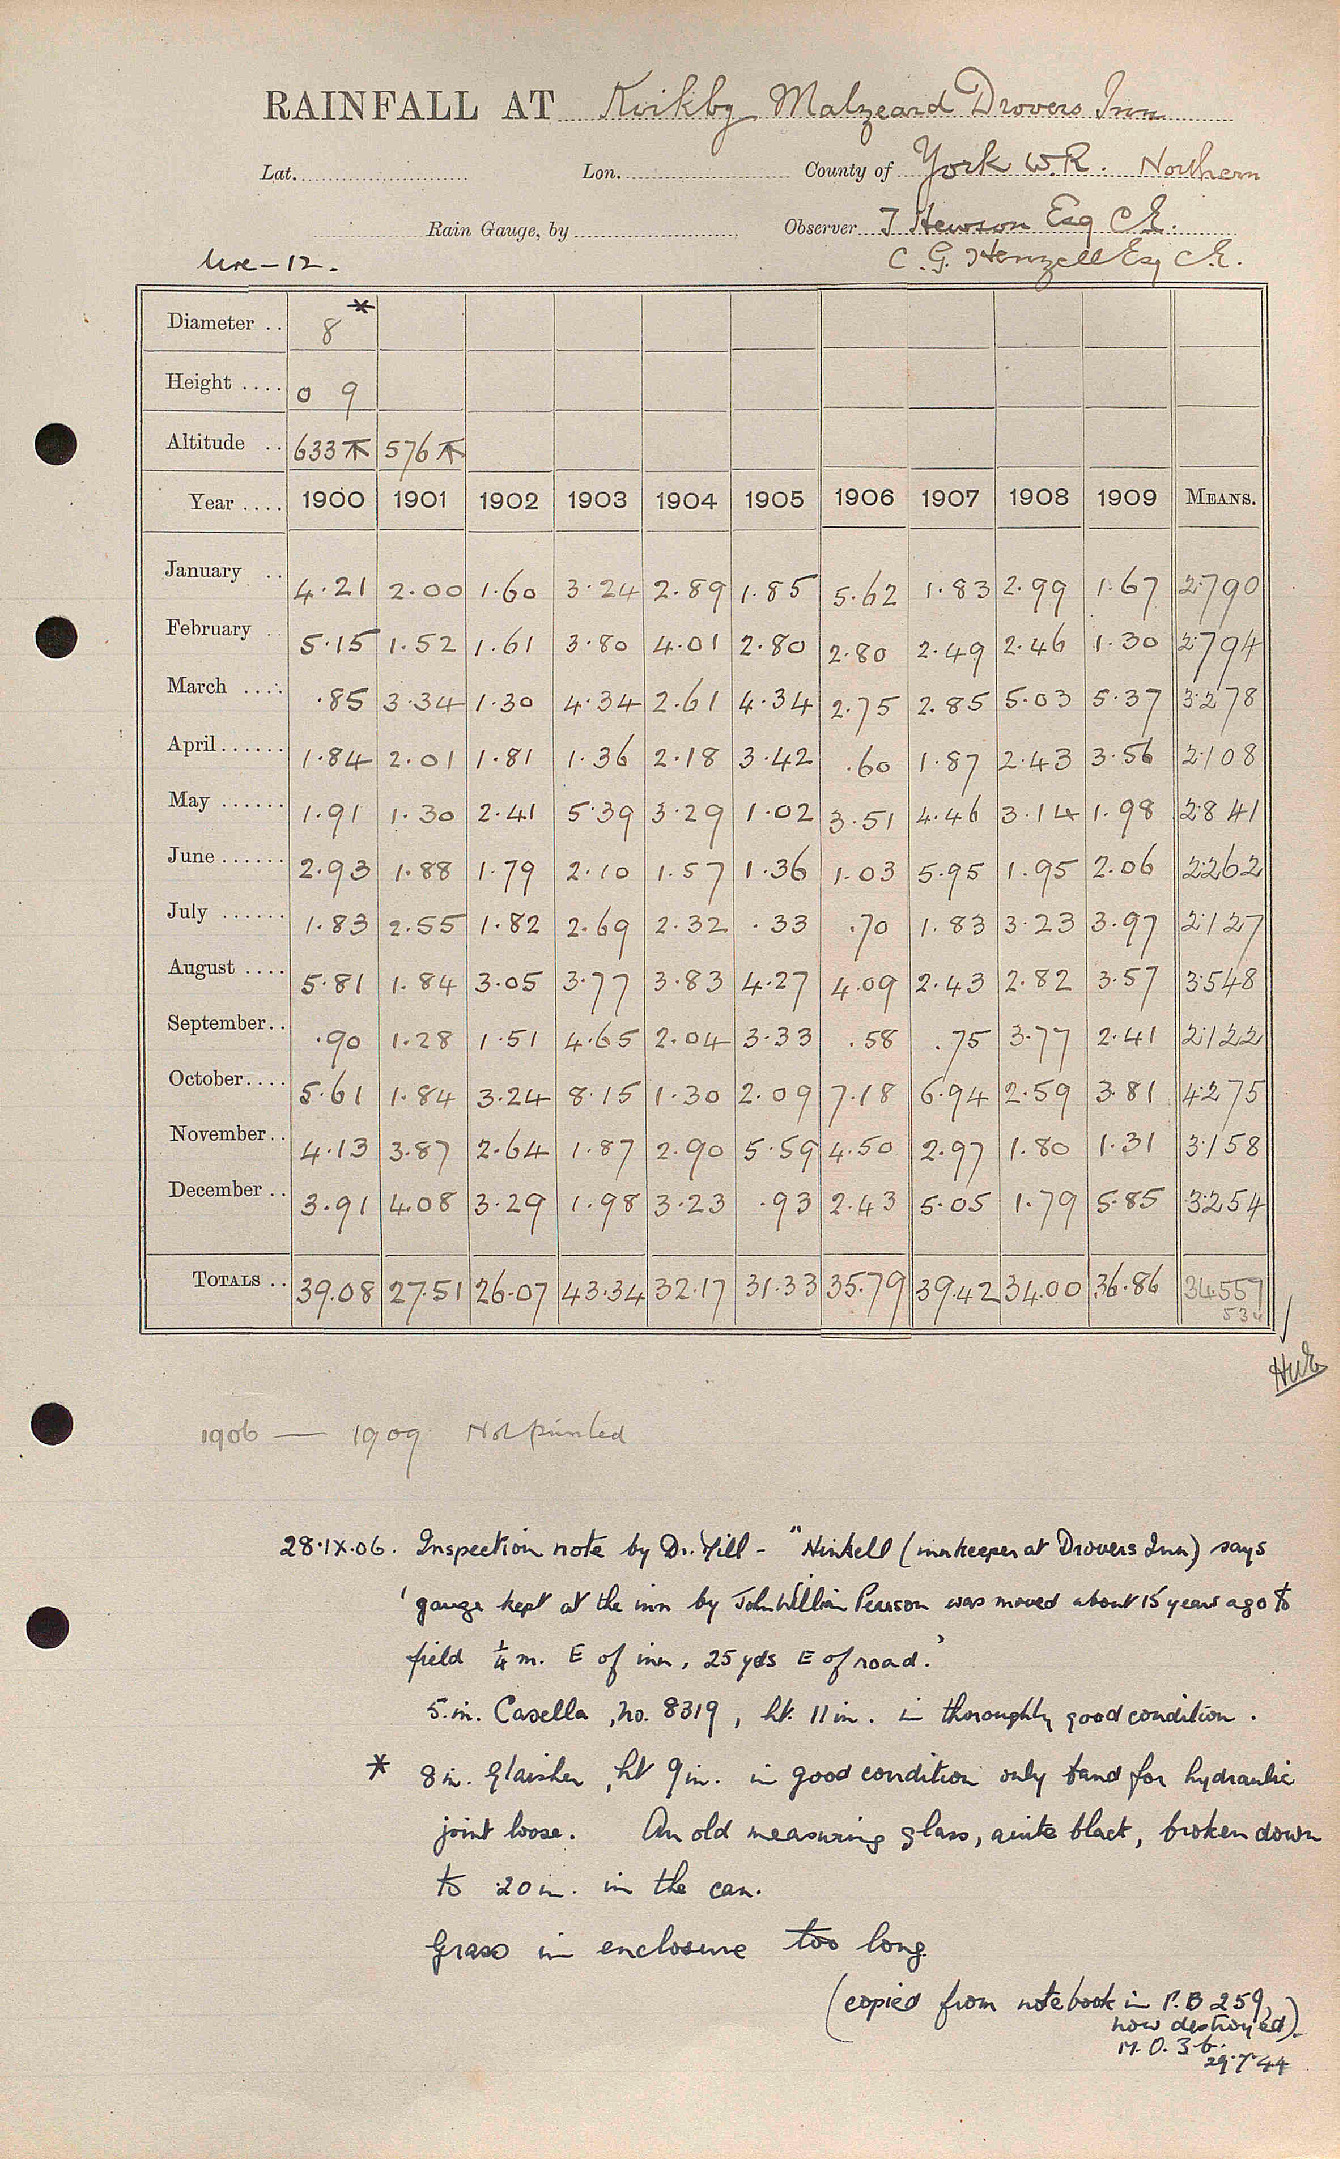 RAINFALL AT Kirkby Malzeard Drovers Inn
Lat. Lon. County of York W.R. Northern
Rain Gauge, by Observer T Hewson Esq C.E.
Ure - 12. C. G. Henzell Esq C.E.
Diameter .. 8 *
Height .... 0 9
Altitude .. 633 576
Year .... 1900 1901 1902 1903 1904 1905 1906 1907 1908 1909 MEANS.
January .. 4.21 2.00 1.60 3.24 2.89 1.85 5.62 1.83 2.99 1.67 2.790
February .. 5.15 1.52 1.61 3.80 4.01 2.80 2.80 2.49 2.46 1.30 2.794
March .... .85 3.34 1.30 4.34 2.61 4.34 2.75 2.85 5.03 5.37 3.278
April ...... 1.84 2.01 1.81 1.36 2.18 3.42 .60 1.87 2.43 3.56 2.108
May ...... 1.91 1.30 2.41 5.39 3.29 1.02 3.51 4.46 3.14 1.98 2.841
June ...... 2.93 1.88 1.79 2.10 1.57 1.36 1.03 5.95 1.95 2.06 2.262
July ...... 1.83 2.55 1.82 2.69 2.32 .33 .70 1.83 3.23 3.97 2.127
August .... 5.81 1.84 3.05 3.77 3.83 4.27 4.09 2.43 2.82 3.57 3.548
September .. .90 1.28 1.51 4.65 2.04 3.33 .58 .75 3.77 2.41 2.122
October .... 5.61 1.84 3.24 8.15 1.30 2.09 7.18 6.94 2.59 3.81 4.275
November .. 4.13 3.87 2.64 1.87 2.90 5.59 4.50 2.97 1.80 1.31 3.158
December .. 3.91 4.08 3.29 1.98 3.23 .93 2.43 5.05 1.79 5.85 3.254
TOTALS .. 39.08 27.51 26.07 43.34 32.17 31.33 35.79 39.42 34.00 36.86 34.557
1906 — 1909 Not printed
28.IX.06. Inspection note by Dr. Mill - "Hinkell (innkeeper at Drovers Inn) says
'gauge kept at the inn by John William Pearson was moved about 15 years ago to
field ¼ m. E of inn, 25 yds E of road.'
5.in. Casella, no. 8319, ht. 11 in. in thoroughly good condition.
* 8 in. Glaisher, ht 9 in. in good condition only band for hydraulic
joint loose. An old measuring glass, quite black, broken down
to .20 in. in the can.
Grass in enclosure too long
(copied from notebook in P.B 259,
now destroyed).
M.O. 3 b.
29.7.44